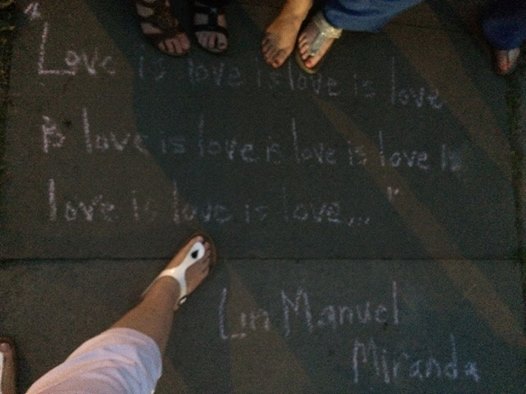 "Love is love is love is love
is love is love is love is love is
love is love is love..."
Lin Manuel
Miranda